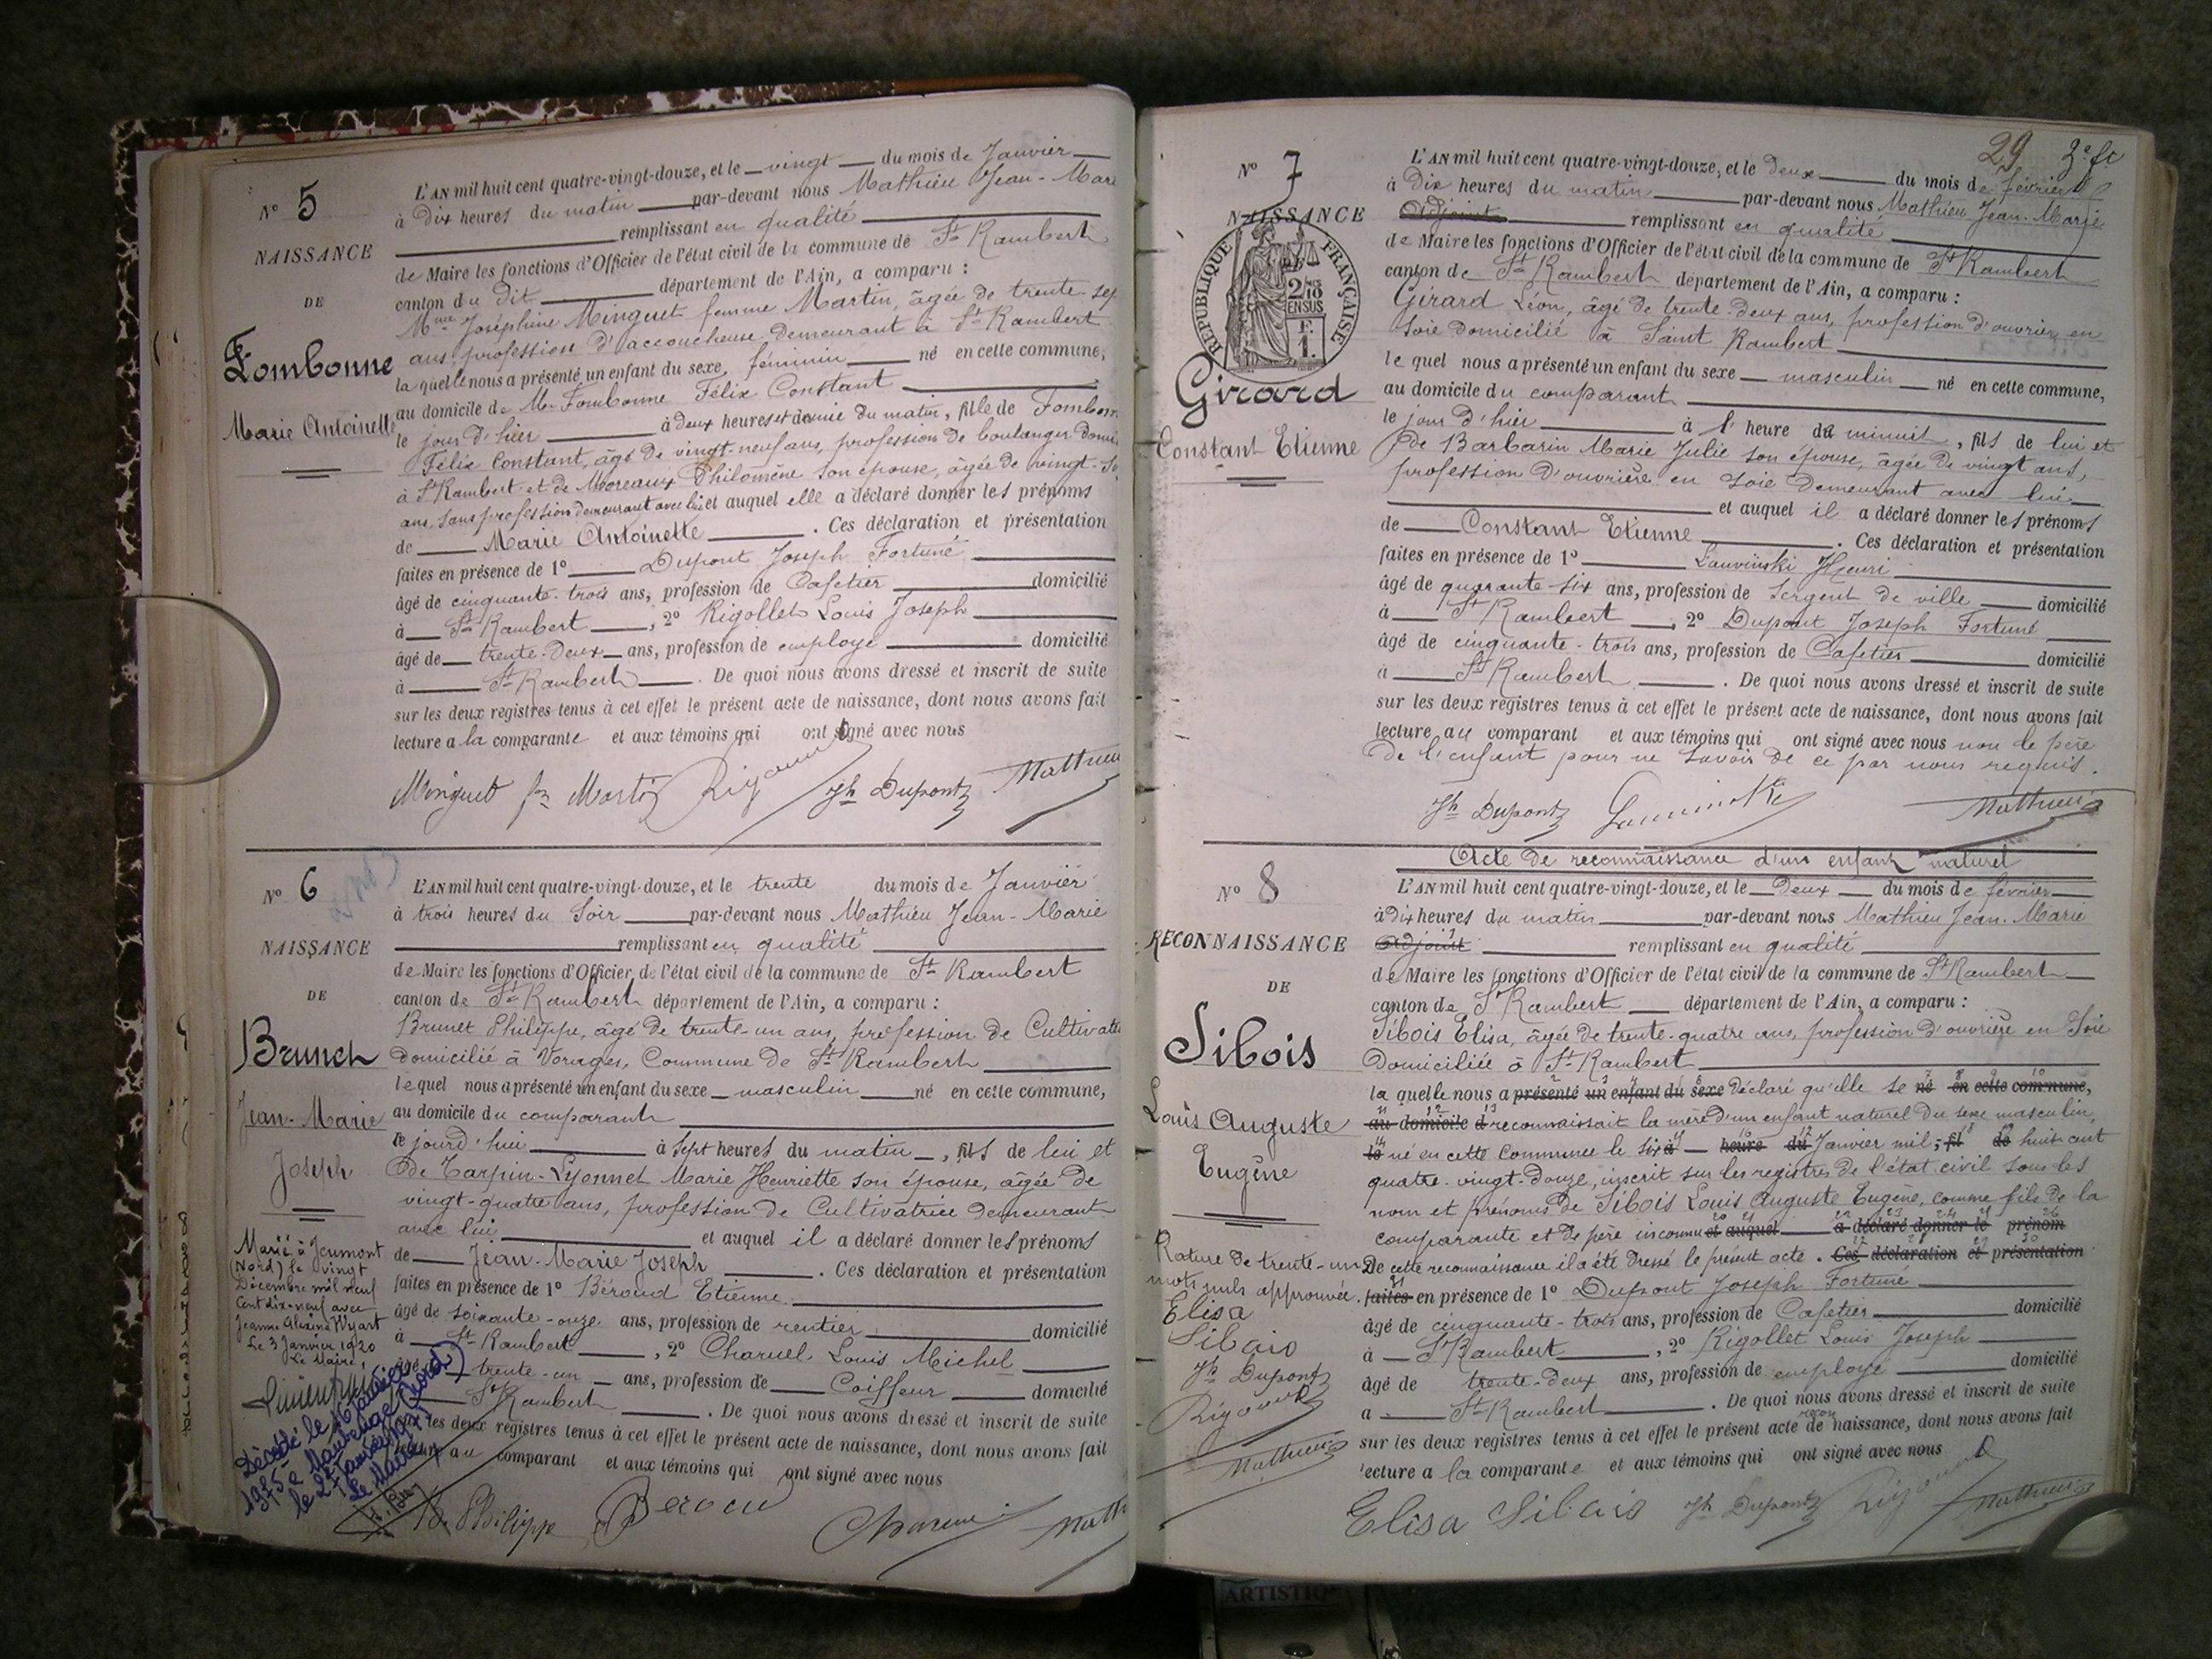 N° 5
NAISSANCE
DE
Fombonne
Marie Antoinette
L'AN mil huit cent quatre-vingt-douze, et le vingt du mois de Janvier
à Dix heures du matin par-devant nous Mathieu Jean-Mari
remplissant en qualité
de Maire les fonctions d'Officier de l'état civil de la commune de St Rambert
canton du dit département de l'Ain, a comparu :
Mme Joséphine Minguet femme Martin, âgée de trente-sep
ans, profession d'accoucheuse demeurant à St Rambert
la quelle nous a présenté un enfant du sexe féminin né en cette commune,
au domicile de Mr Fombonne Félix Constant
le jour d'hier à deux heures et demie du matin, fille de Fombon
Félix Constant, âgé de vingt-neuf ans, profession de boulanger domi
à St Rambert et de Moreaux Philomène son épouse, âgée de vingt-
ans, sans profession demeurant avec lui et auquel elle a déclaré donner les prénoms
de Marie Antoinette . Ces déclaration et présentation
faites en présence de 1° Dupont Joseph Fortuné
âgé de cinquante-trois ans, profession de Cafetier domicilié
à St Rambert , 2° Rigollet Louis Joseph
âgé de trente-deux ans, profession de employé domicilié
à St Rambert . De quoi nous avons dressé et inscrit de suite
sur les deux registres tenus à cet effet le présent acte de naissance, dont nous avons fait
lecture a la comparante et aux témoins qui ont signé avec nous
Minguet fe Martin Jh Dupont Mathieu
N° 6
NAISSANCE
DE
Brunet
Jean-Marie
Joseph
L'AN mil huit cent quatre-vingt-douze, et le trente du mois de Janvier
à trois heures du soir par-devant nous Mathieu Jean-Marie
remplissant en qualité
de Maire les fonctions d'Officier de l'état civil de la commune de St Rambert
canton de St Rambert département de l'Ain, a comparu :
Brunet Philippe, âgé de trente-un ans, profession de Cultivate
domicilié à Vorages, Commune de St Rambert
le quel nous a présenté un enfant du sexe masculin né en cette commune,
au domicile du comparant
le jourd'hui à sept heures du matin, fils de lui et
de Tarpin-Lyonnet Marie Henriette son épouse, âgée de
vingt-quatre ans, profession de Cultivatrice demeurant
avec lui et auquel il a déclaré donner les prénoms
de Jean-Marie Joseph . Ces déclaration et présentation
faites en présence de 1° Béroud Etienne
âgé de soixante-onze ans, profession de rentier domicilié
à St Rambert , 2° Charvel Louis Michel
âgé trente-un ans, profession de Coiffeur domicilié
St Rambert . De quoi nous avons dressé et inscrit de suite
sur les deux registres tenus à cet effet le présent acte de naissance, dont nous avons fait
lecture au comparant et aux témoins qui ont signé avec nous
Marié à Jeumont
(Nord) le vingt
Décembre mil neuf
cent dix-neuf avec
Jeanne Alexina Wyart
Le 3 Janvier 1920
Le Maire,
Décédé le janvier
1975 a Maubeuge (Nord)
le 27 janvier 1975
Le Maire
Br Philippe Beroud
29
N° 7
NAISSANCE
RÉPUBLIQUE FRANÇAISE
2/10 EN SUS
F. 1.
Girard
Constant Etienne
L'AN mil huit cent quatre-vingt-douze, et le deux du mois de février
à Dix heures du matin par-devant nous Mathieu Jean-Marie
Adjoint remplissant en qualité
de Maire les fonctions d'Officier de l'état civil de la commune de St Rambert
canton de St Rambert département de l'Ain, a comparu :
Girard Léon, âgé de trente-deux ans, profession d'ouvrier en
soie domicilié à Saint Rambert
le quel nous a présenté un enfant du sexe masculin né en cette commune,
au domicile du comparant
le jour d'hier à l'heure de minuit, fils de lui et
de Barbarin Marie Julie son épouse, âgée de vingt ans,
profession d'ouvrière en soie demeurant avec lui
et auquel il a déclaré donner les prénoms
de Constant Etienne . Ces déclaration et présentation
faites en présence de 1° Lauvinski Henri
âgé de quarante-six ans, profession de Sergent de ville domicilié
à St Rambert , 2° Dupont Joseph Fortuné
âgé de cinquante-trois ans, profession de Cafetier domicilié
à St Rambert . De quoi nous avons dressé et inscrit de suite
sur les deux registres tenus à cet effet le présent acte de naissance, dont nous avons fait
lecture au comparant et aux témoins qui ont signé avec nous non le père
de l'enfant pour ne savoir de ce par nous requis.
Jh Dupont Mathieu
Acte de reconnaissance d'un enfant naturel
N° 8
RECONNAISSANCE
DE
Sibois
Louis Auguste
Eugène
L'AN mil huit cent quatre-vingt-douze, et le Deux du mois de février
à dix heures du matin par-devant nous Mathieu Jean-Marie
Adjoint remplissant en qualité
de Maire les fonctions d'Officier de l'état civil de la commune de St Rambert
canton de St Rambert département de l'Ain, a comparu :
Sibois Elisa, âgée de trente-quatre ans, profession d'ouvrière en Soie
Domiciliée à St Rambert
la quelle nous a présenté un enfant du sexe déclaré qu'elle se né en cette commune,
au domicile d reconnaissait la mère d'un enfant naturel du sexe masculin,
le né en cette Commune le six à heure du Janvier mil, fil de huit cent
quatre-vingt-douze, inscrit sur les registres de l'état civil sous les
nom et prénoms de Sibois Louis Auguste Eugène, comme fils de la
comparante et de père inconnu et auquel a déclaré donner le prénom
De cette reconnaissance il a été dressé le présent acte. Ces déclaration et présentation
faites en présence de 1° Dupont Joseph Fortuné
âgé de cinquante-trois ans, profession de Cafetier domicilié
à St Rambert , 2° Rigollet Louis Joseph
âgé de trente-deux ans, profession de employé domicilié
a St Rambert . De quoi nous avons dressé et inscrit de suite
sur les deux registres tenus à cet effet le présent acte de naissance, dont nous avons fait
lecture a la comparante et aux témoins qui ont signé avec nous
Rature de trente-un
mots nuls approuvée.
Elisa
Sibois
Jh Dupont
Mathieu
Elisa Sibois Jh Dupont Mathieu
ARTISTIQ